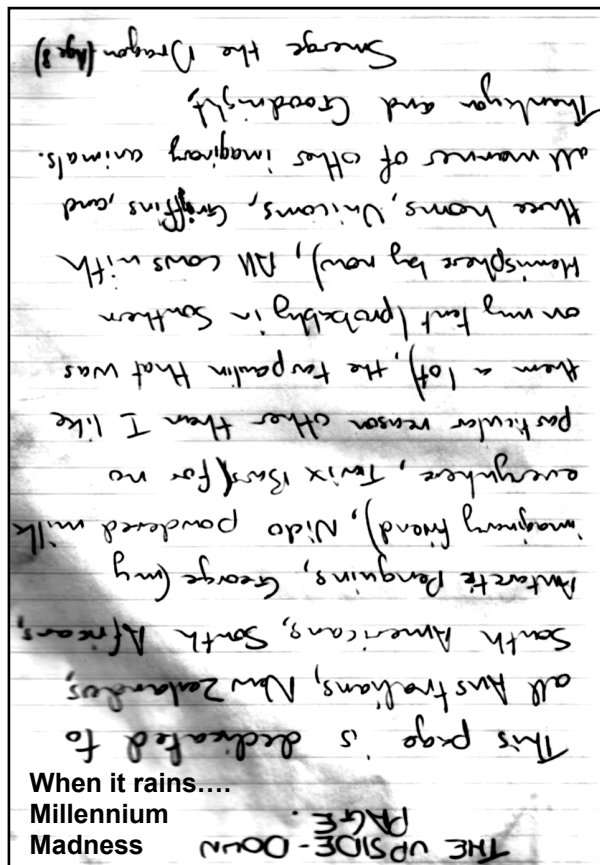 THE UPSIDE-DOWN
PAGE.
This page is dedicated to
all Australians, New Zealanders,
South Americans, South Africans,
Antarctic Penguins, George (my
imaginery friend), Nido powdered milk
everywhere, Twix Bars (for no
particular reason other then I like
them a lot), the tarpaulin that was
on my tent (probably in Southern
Hemisphere by now), All cows with
three horns, Unicorns, Griffins, and
all manner of other imaginary animals.
Thankyou and Goodnight,
Smerge the Dragon (Age 3)
When it rains....
Millennium
Madness